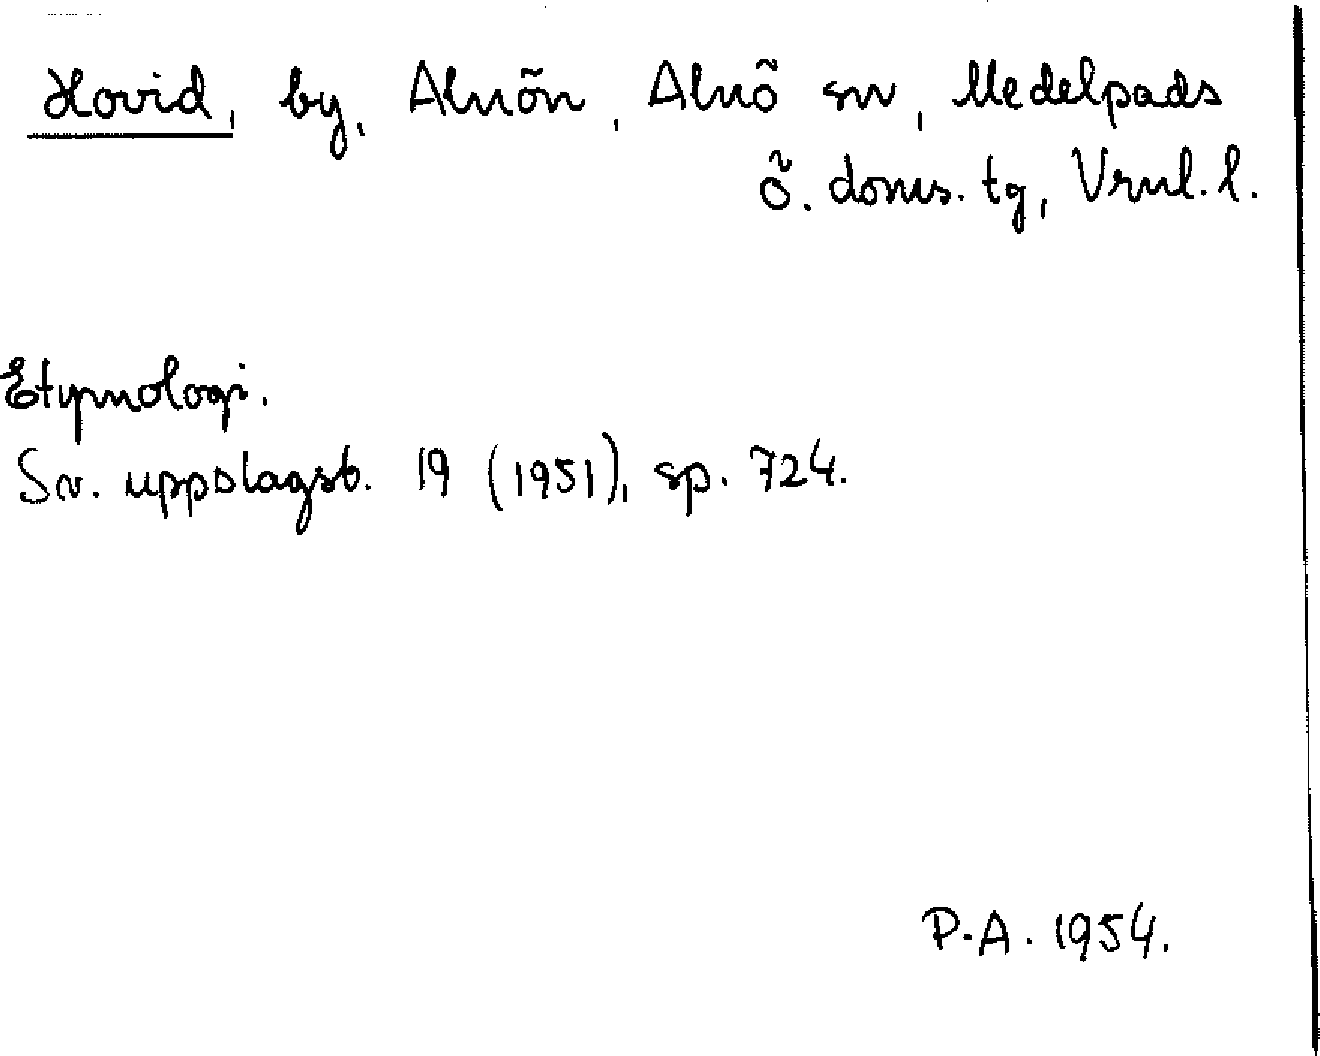 Hovid, by, Alnön, Alnö sn, Medelpads
ö. doms. tg, Vrnl. l.
Etymologi.
Sv. uppslagsb. 19 (1951), sp. 724.
P.A. 1954.